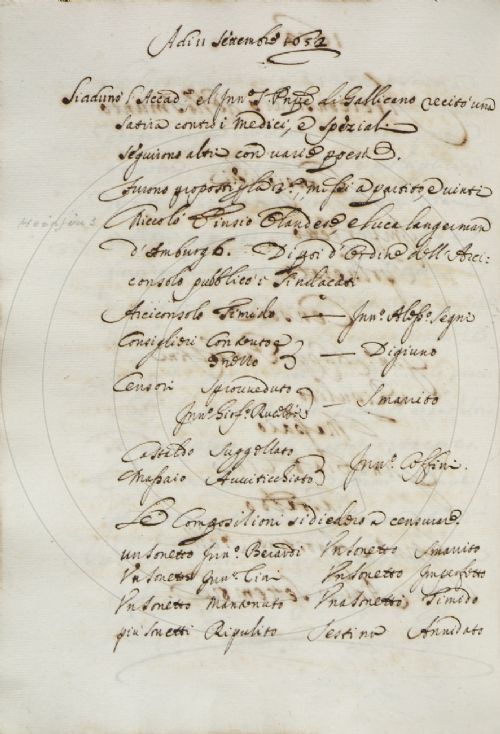 Adi 11 Settembre 1652
Si adunò l'Accad.ᵃ, e l' Inn.º S. Pnpe di Gallicano recitò una
satira contro i Medici, e Speziali
seguirono altri con varie poesie.
Furono proposti messi a partito, e vinti
Heinsius
Niccolò Einsio Olandese e Luca Langerman
d'Amburgh. Di poi d'Ordine dell'Arci-
consolo pubblicò i Sindacati
Arciconsolo Timido. — Inn.º Aless.º Segni
Consiglieri Contento e
— Digiuno
Censori Sprovveduto
Inn.º Rucellai — Smarrito
Castaldo Suggellato
Massaio Avviticchiato Inn.º Coffini.
Le Composizioni si diedero a censurare.
un sonetto Inn.º Berardi Un sonetto Smarrito
Un sonetto Inn.º Cini Un sonetto Imperfetto
Un sonetto Mantenuto Un sonetto Timido
più sonetti Ripulito Sestine Annidato